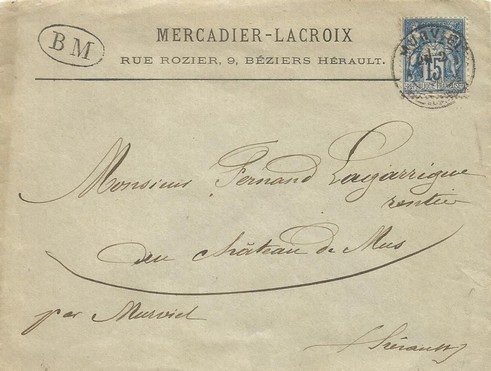 BM
MERCADIER-LACROIX
RUE ROZIER, 9, BÉZIERS HÉRAULT.
15
Monsieur Fernand Lagarrigue
rentier
au château de Mus
par Murviel
Hérault